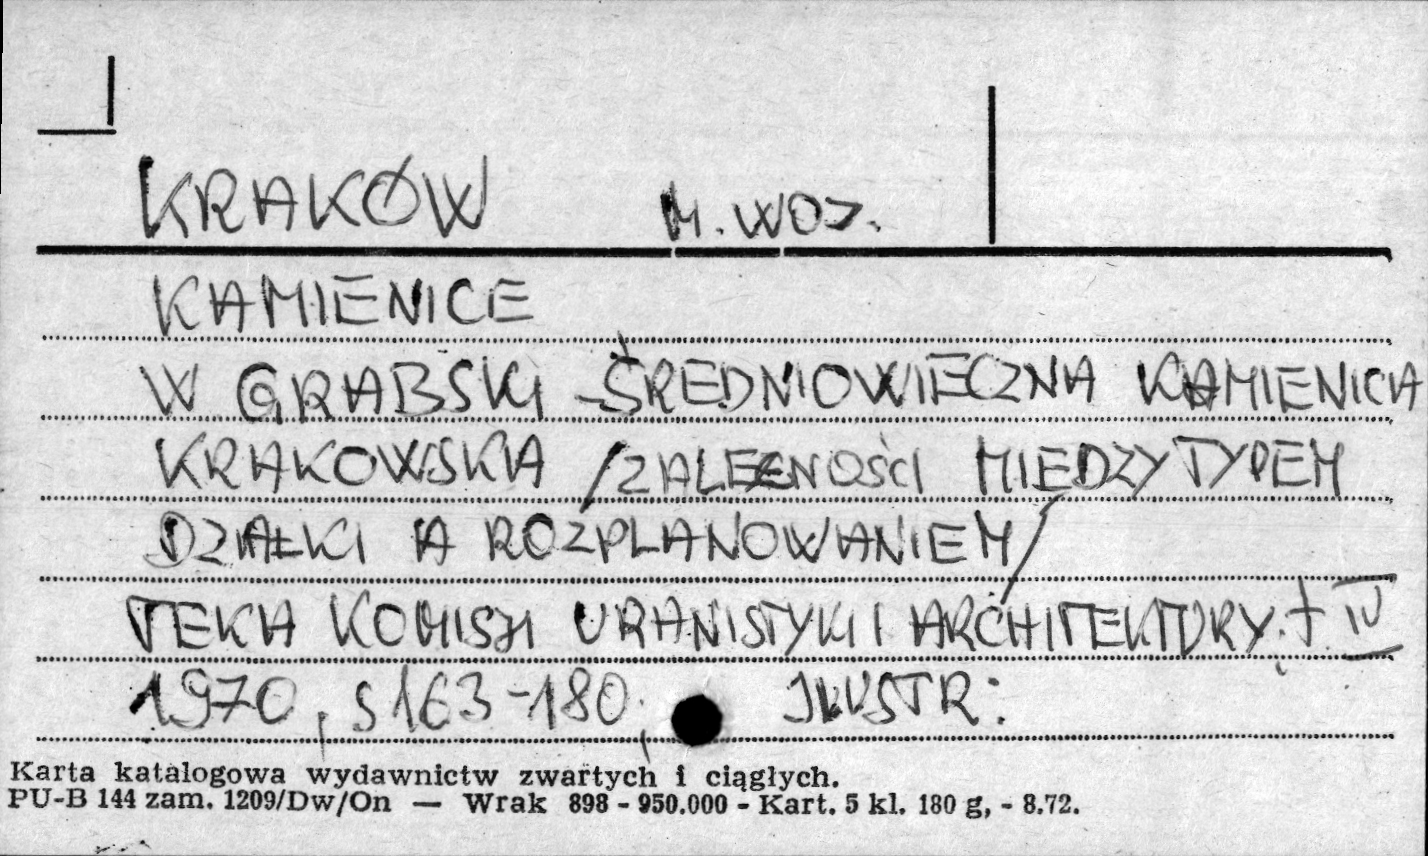 KRAKÓW M. WOJ.
KAMIENICE
W GRABSKI - ŚREDNIOWIECZNA KAMIENICA
KRAKOWSKA /ZALEŻNOŚCI MIEDZY TYPEM
DZIAŁKI A ROZPLANOWANIEM/
TEKA KOMISJI URANISTYKI I ARCHITEKTURY. t. IV
1970, s 163-180, ILUSTR:
Karta katalogowa wydawnictw zwartych i ciągłych.
PU-B 144 zam. 1209/Dw/On — Wrak 898 - 950.000 - Kart. 5 kl. 180 g, - 8.72.